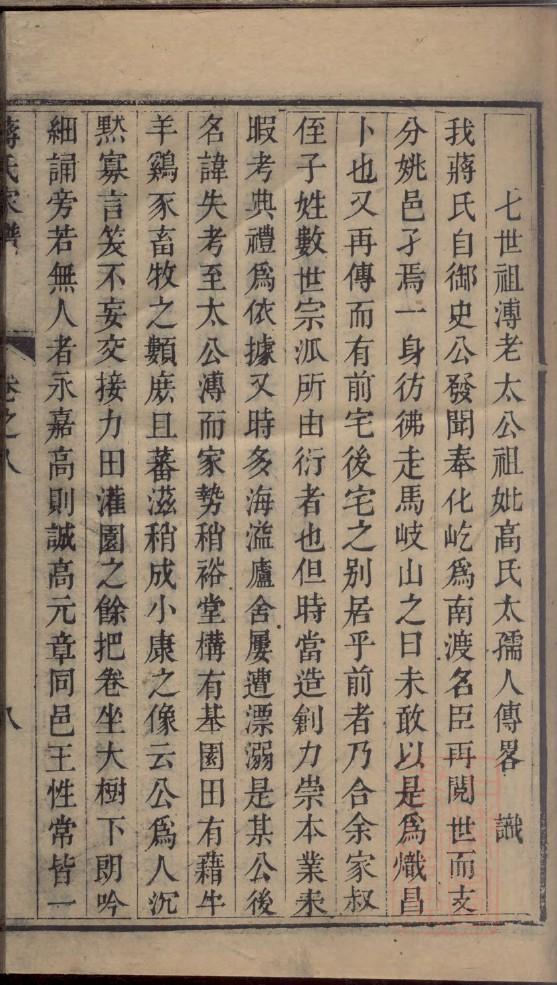 七世祖溥老太公祖妣高氏太孺人傳畧　識
我蔣氏自御史公發聞奉化屹爲南渡名臣再閱世而支
分姚邑孑焉一身彷彿走馬岐山之日未敢以是爲熾昌
卜也又再傳而有前宅後宅之别居乎前者乃合余家叔
侄子姓數世宗派所由衍者也但時當造創力崇本業未
暇考典禮爲依據又時多海溢廬舍屢遭漂溺是某公後
名諱失考至太公溥而家勢稍裕堂構有基園田有藉牛
羊鷄豕畜牧之類庶且蕃滋稍成小康之像云公爲人沉
黙寡言笑不妄交接力田灌園之餘把卷坐大樹下朗吟
細誦旁若無人者永嘉高則誠高元章同邑王性常皆一
蔣氏家譜　卷之八　八